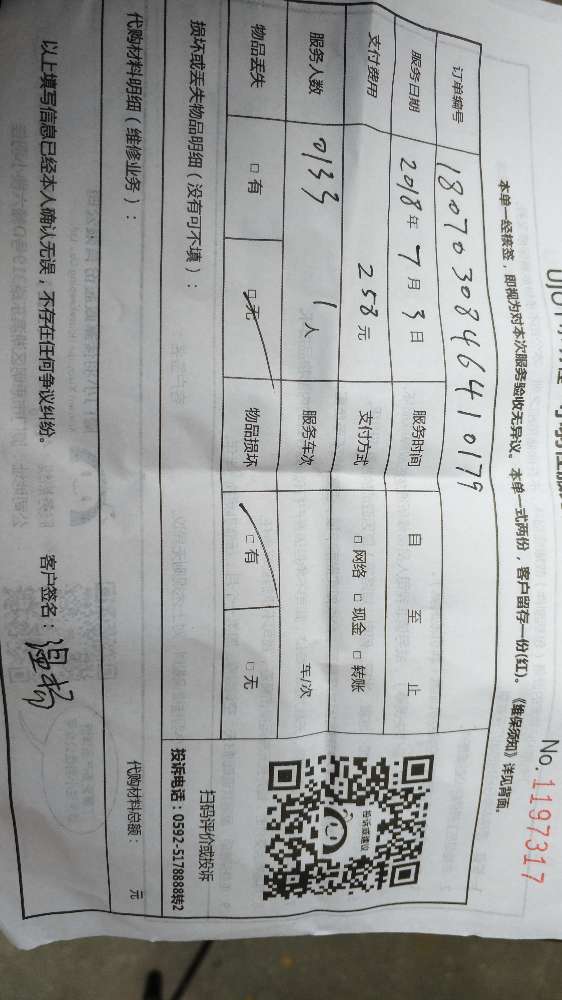 No.1197317
本单一经核签，即视为对本次服务验收无异议。本单一式两份，客户留存一份(红)。《维保须知》详见背面。
订单编号 1807030846410179
服务日期 2018年7月3日 服务时间 自 至 止
支付费用 258元 支付方式 □网络 □现金 □转账
服务人数 0133 1人 服务车次 车/次
物品丢失 □有 □无 物品损坏 □有 □无
损坏或丢失物品明细（没有可不填）：
投诉或建议
扫码评价或投诉
投诉电话：0592-5178888转2
代购材料明细（维修业务）： 代购材料总额： 元
以上填写信息已经本人确认无误，不存在任何争议纠纷。 客户签名：温杨